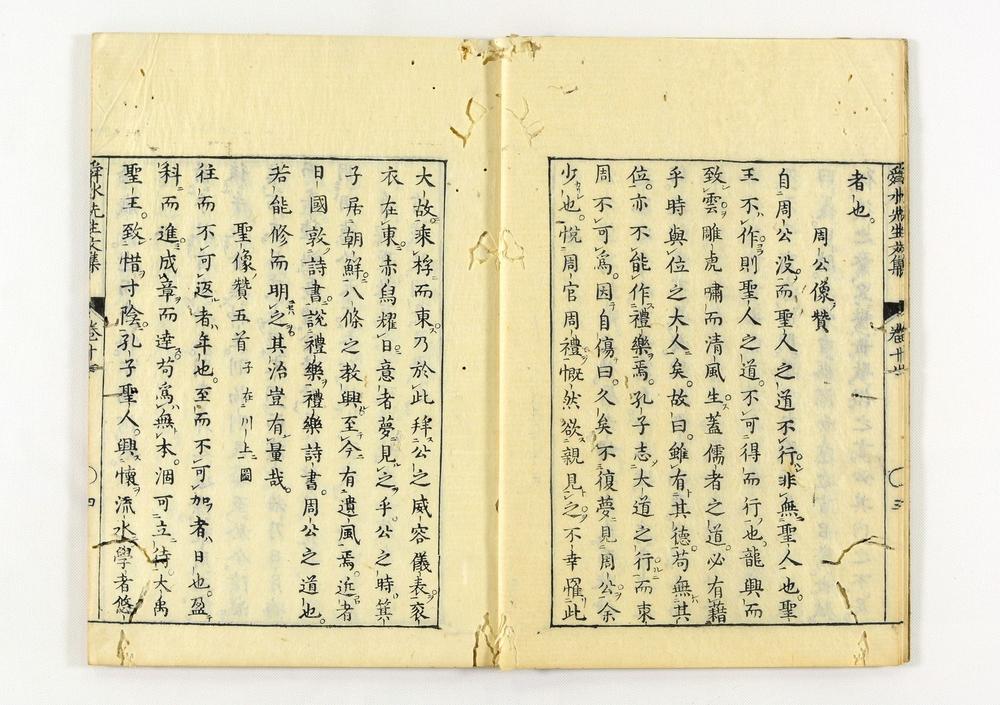 舜水先生文集
卷十
三
者也。
周公像贊
自周公没。而聖人之道不行。非無聖人也。聖
王不作。則聖人之道。不可得而行也。龍興而
致雲。雕虎嘯而清風生。蓋儒者之道。必有藉
乎時與位之大人矣。故曰。雖有其德。苟無其
位。亦不能作禮樂焉。孔子志大道之行。而東
周不可爲。因自傷曰。久矣不復夢見周公。余
少也。悅周官周禮。慨然欲親見之。不幸罹此
大故。乘桴而東。乃於此拜公之威容儀表。袞
衣在東。赤舄耀日。意者夢見之乎。公之時箕
子居朝鮮。八條之敎。興至今有遺風焉。近者
日國敦詩書。說禮樂。禮樂詩書。周公之道也。
若能修而明之。其治豈有量哉。
聖像贊五首 子在川上圖
往而不可返者。年也。至而不可加者。日也。盈
科而進。成章而達。苟爲無本。涸可立待。大禹
聖王。致惜寸陰。孔子聖人。興懷流水。學者悠
舜水先生文集
卷十
四